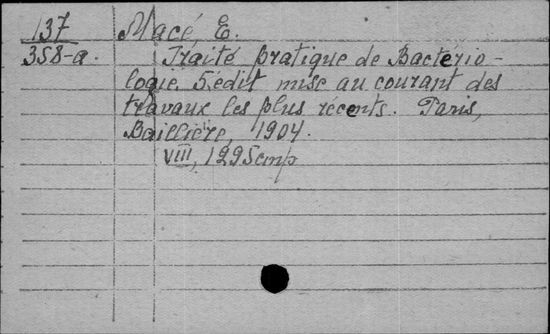 137 Macé, E.
358-a. Traité pratique de Bactério-
logie. 5.édit mise au courant des
travaux les plus récents. Paris,
Baillière, 1904.
VIII, 1295 стр